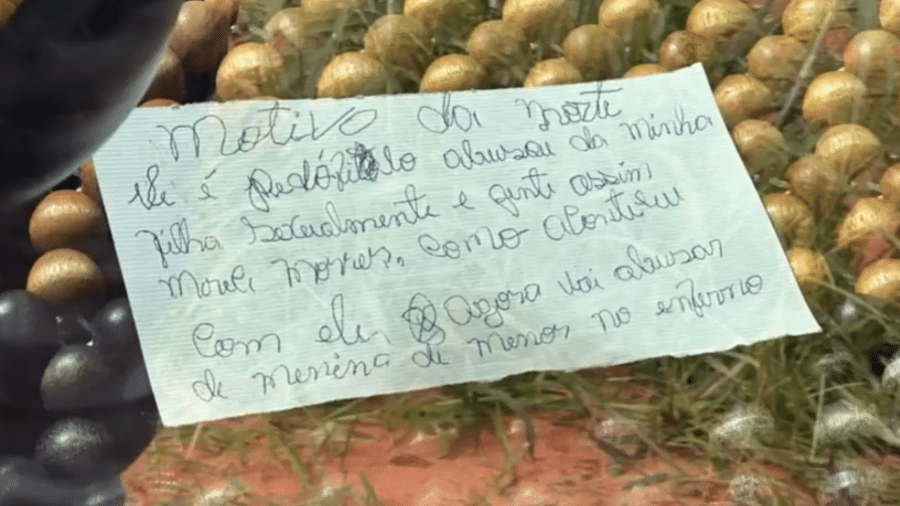 Motivo da morte
Ele é pedófilo abusou da minha
filha sexualmente e gente assim
mereci morrer. como aconteceu
com ele agora vai abusar
de menina de menor no enferno